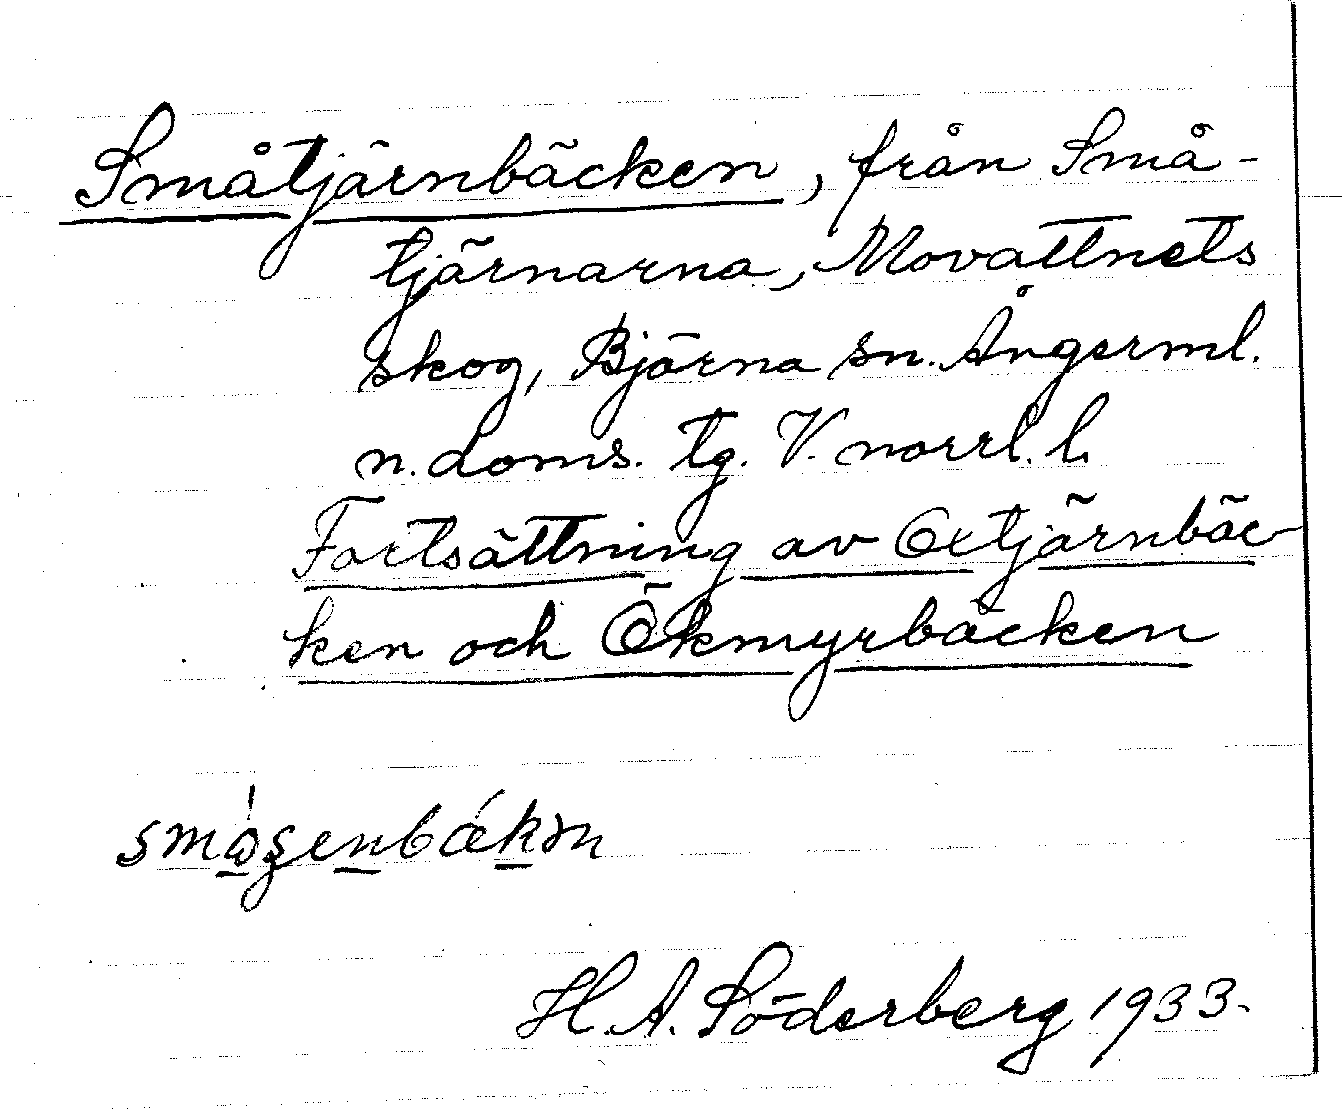 Småtjärnbäcken, från Små-
tjärnarna, Movattnets
skog, Björna sn. Ångerml.
n. doms. tg. V. norrl. l.
Fortsättning av Oxtjärnbäc
ken och Ökmyrbäcken
H. A. Söderberg 1933.